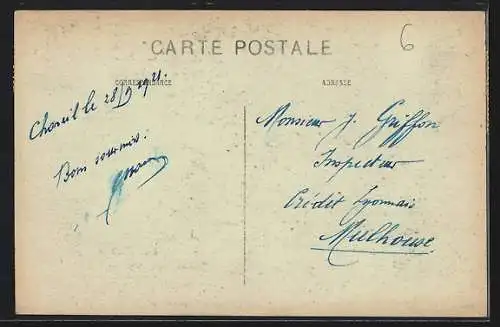 6
CARTE POSTALE
CORRESPONDANCE
ADRESSE
le 28/9 1921.
Bon souvenir.
Monsieur J. Griffon
Inspecteur
Crédit Lyonnais
Mulhouse